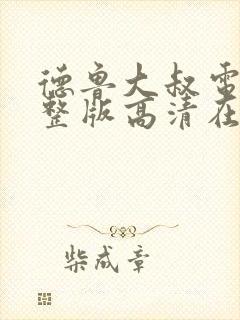 德鲁大叔电
整版高清在
柴成章